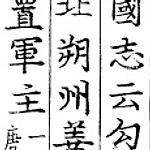 國志云勾
北朔州姜
置軍主一
唐